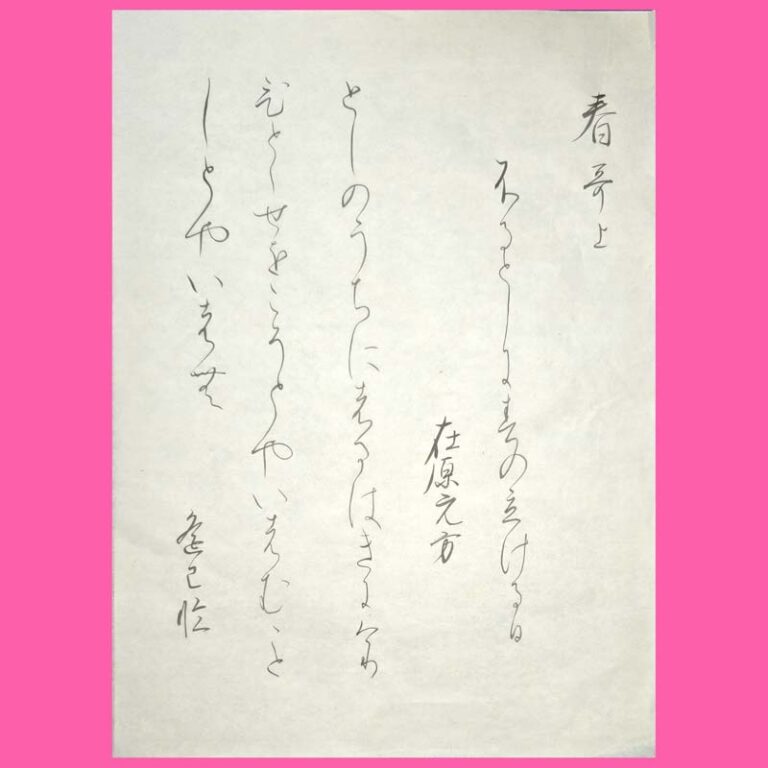 春哥上
ふるとしに春の立ける日
在原元方
としのうちにはるはきにけり
ひとゝせをこそとやいはむこと
しとやいはむ